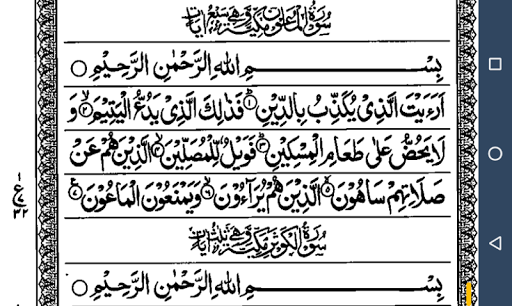 سُوْرَةُ الْمَاعُوْنِ مَكِّيَّةٌ وَّهِيَ سَبْعُ اٰيَاتٍ
بِسْمِ اللهِ الرَّحْمٰنِ الرَّحِيْمِ ۝
اَرَءَيْتَ الَّذِىْ يُكَذِّبُ بِالدِّيْنِ ۝١ فَذٰلِكَ الَّذِىْ يَدُعُّ الْيَتِيْمَ ۝٢ وَ
لَا يَحُضُّ عَلٰى طَعَامِ الْمِسْكِيْنِ ۝٣ فَوَيْلٌ لِّلْمُصَلِّيْنَ ۝٤ الَّذِيْنَ هُمْ عَنْ
صَلَاتِهِمْ سَاهُوْنَ ۝٥ الَّذِيْنَ هُمْ يُرَآءُوْنَ ۝٦ وَيَمْنَعُوْنَ الْمَاعُوْنَ ۝٧
١
ع
٧
٣٢
سُوْرَةُ الْكَوْثَرِ مَكِّيَّةٌ وَّهِيَ ثَلٰثُ اٰيَاتٍ
بِسْمِ اللهِ الرَّحْمٰنِ الرَّحِيْمِ ۝